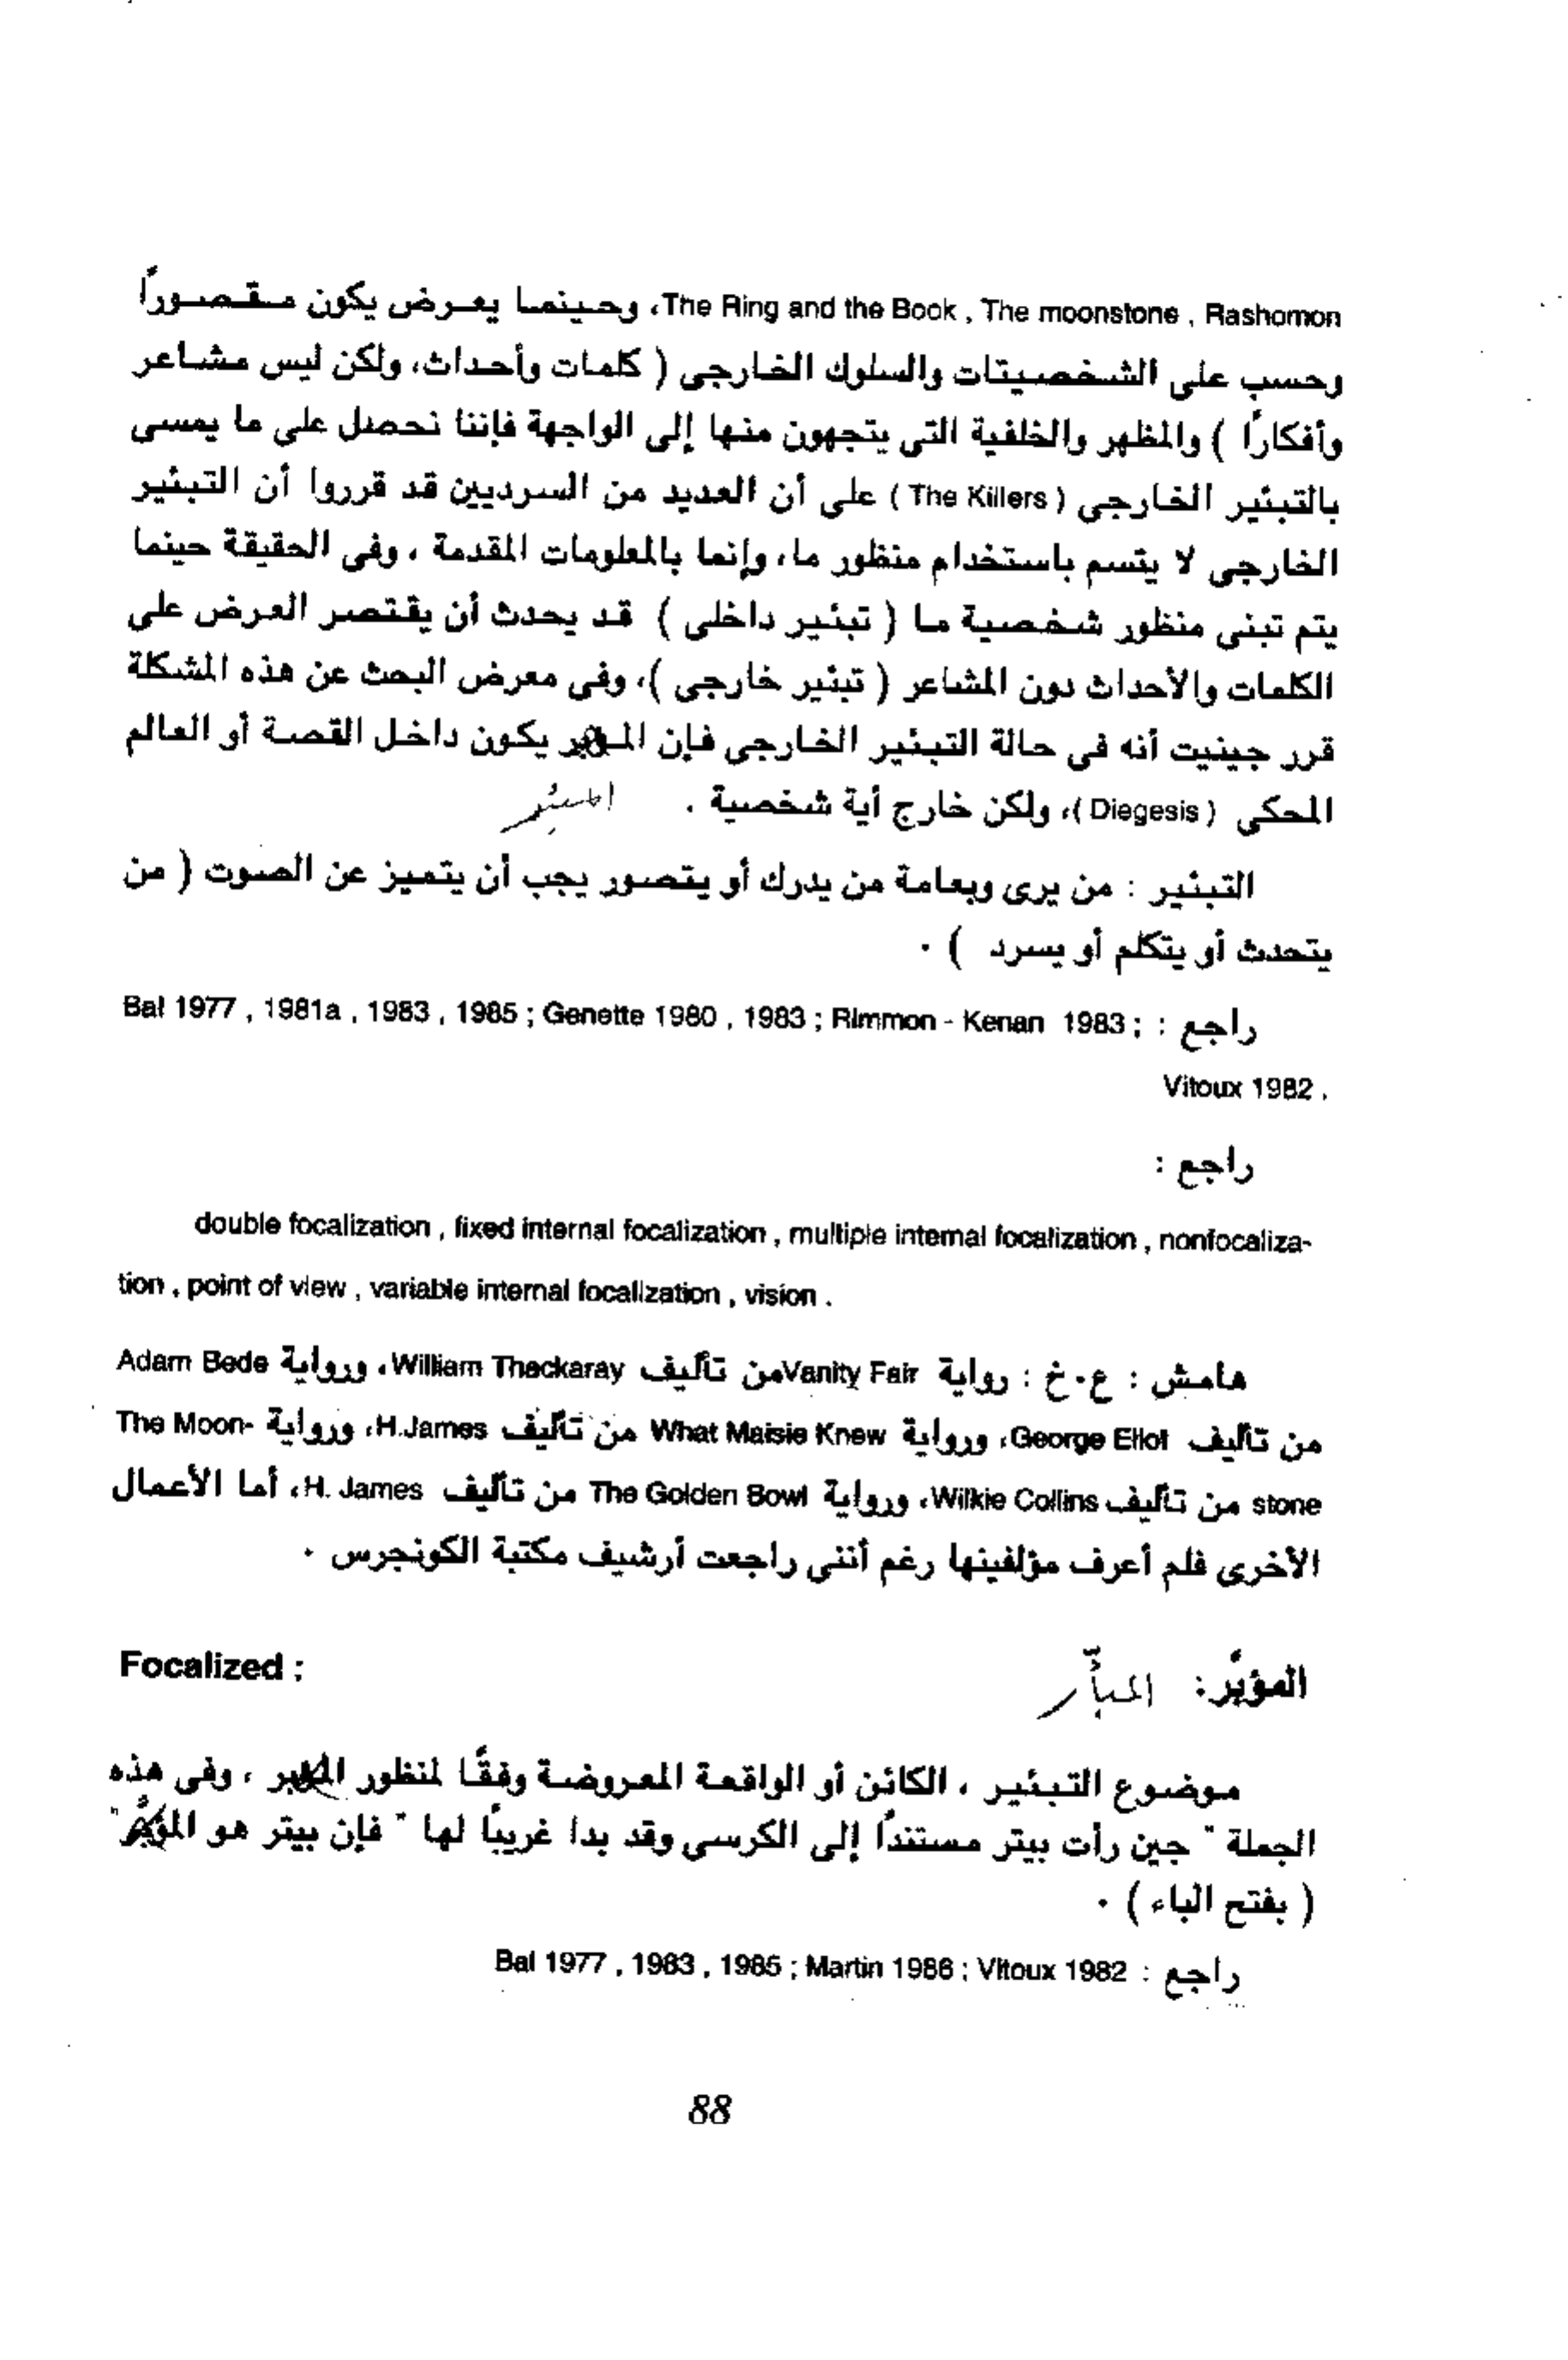 The Ring and the Book , The moonstone , Rashomon، وحينما يعرض يكون مقصوراً
وحسب على الشخصيتات والسلوك الخارجى ( كلمات وأحداث، ولكن ليس مشاعر
وأفكاراً ) والمظهر والخلفية التى يتجهون منها إلى الواجهة فإننا نحصل على ما يمسى
بالتبئير الخارجى ( The Killers ) على أن العديد من السرديين قد قرروا أن التبئير
الخارجى لا يتسم باستخدام منظور ما، وإنما بالمعلومات المقدمة ، وفى الحقيقة حينما
يتم تبنى منظور شخصية ما ( تبئير داخلى ) قد يحدث أن يقتصر العرض على
الكلمات والأحداث دون المشاعر ( تبئير خارجى )، وفى معرض البحث عن هذه المشكلة
قرر جينيت أنه فى حالة التبئير الخارجى فإن يكون داخل القصة أو العالم
المحكى ( Diegesis )، ولكن خارج أية شخصية . المبئر
التبئير : من يرى وبعامة من يدرك أو يتصور يجب أن يتميز عن الصوت ( من
يتحدث أو يتكلم أو يسرد ) .
راجع : Bal 1977 , 1981a , 1983 , 1985 ; Genette 1980 , 1983 ; Rimmon - Kenan 1983 ;
Vitoux 1982 .
راجع :
double focalization , fixed internal focalization , multiple internal focalization , nonfocaliza-
tion , point of view , variable internal focalization , vision .
هامش : ع.خ : رواية Vanity Fair من تأليف William Thackaray، ورواية Adam Bede
من تأليف George Eliot، ورواية What Maisie Knew من تأليف H.James، ورواية The Moon-
stone من تأليف Wilkie Collins، ورواية The Golden Bowl من تأليف H. James، أما الأعمال
الأخرى فلم أعرف مؤلفينها رغم أننى راجعت أرشيف مكتبة الكونجرس .
المؤبَّر: المبأَّر Focalized ;
موضوع التبئير ، الكائن أو الواقعة المعروضة وفقًا لمنظور ، وفى هذه
الجملة " جين رأت بيتر مستنداً إلى الكرسى وقد بدا غريبًا لها " فإن بيتر هو "
( بفتح الباء ) .
راجع : Bal 1977 , 1983 , 1985 ; Martin 1986 ; Vitoux 1982
88